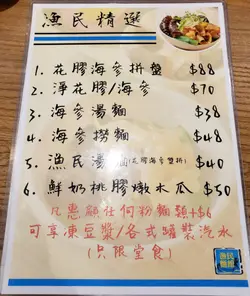 漁民精選
1. 花膠海參拼盤 $88
2. 淨花膠/海參 $70
3. 海參湯麵 $38
4. 海參撈麵 $48
5. 漁民湯 (花膠海參雙拼) $40
6. 鮮奶桃膠燉木瓜 $50
凡惠顧任何粉麵類+$6
可享凍豆漿/各式罐裝汽水
(只限堂食)
漁民